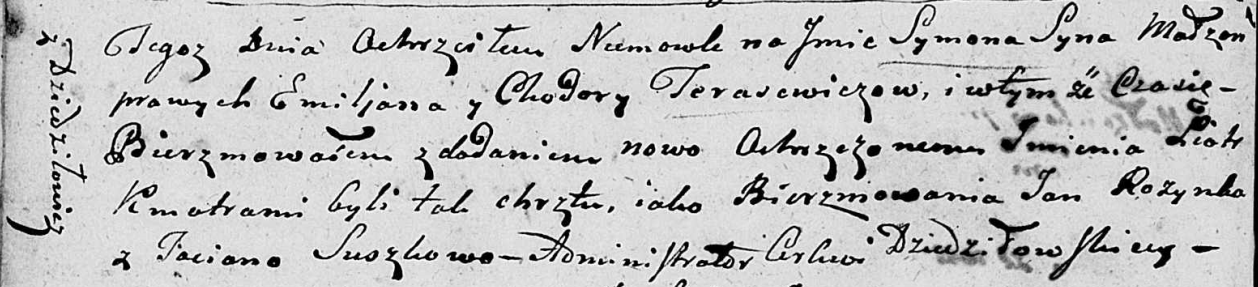 z Dziedziłowicz
Tegoz Dnia Ochrzciłem Niemowle na Jmie Symona Syna Małzon
prawych Emiljana y Chodory Terasewiczow, i wtym że Czasie –
Bierzmowałem z dodaniem nowo Ochrzczonemu Jmienia Piotr
Kmotrami byli tak chrztu, iako Bierzmowania Jan Rozynko
z Tacianą Suszkowo – Administrator Cerkwi Dziedziłowskiey –